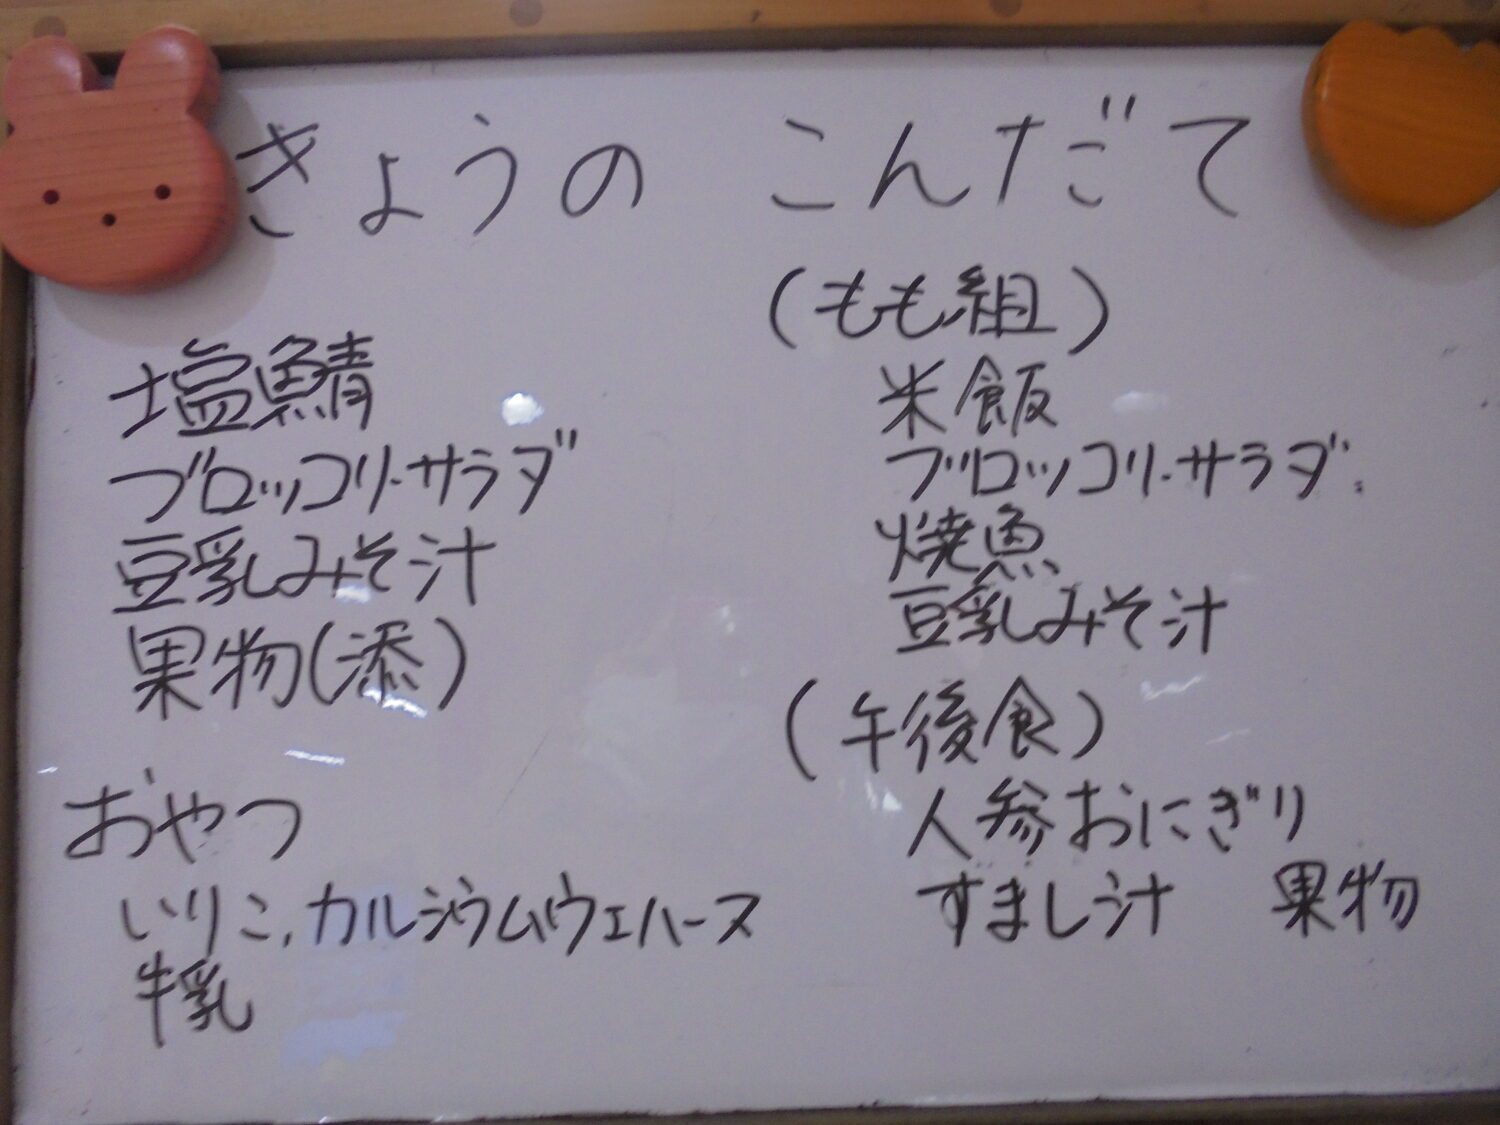 きょうの こんだて
塩鯖
ブロッコリーサラダ
豆乳みそ汁
果物(添)
おやつ
いりこ,カルシウムウエハース
牛乳
(もも組)
米飯
ブロッコリーサラダ
焼魚
豆乳みそ汁
(午後食)
人参おにぎり
すまし汁 果物